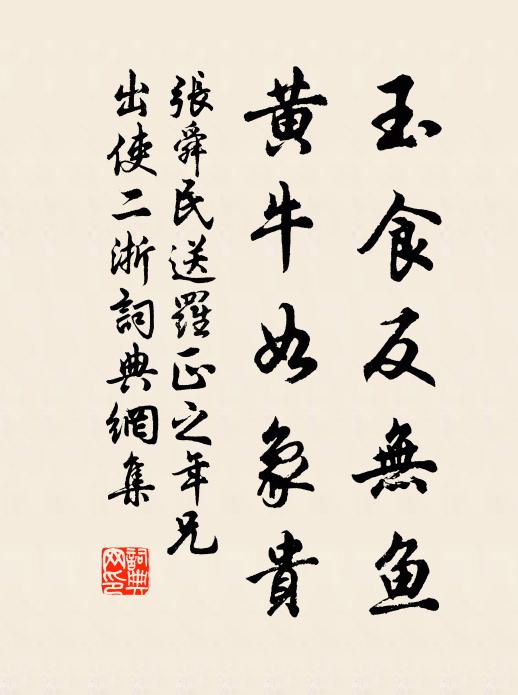 玉食反無魚
黄牛如象貴
張舜民送羅正之年兄
出使二浙詞典網集
詞典网印